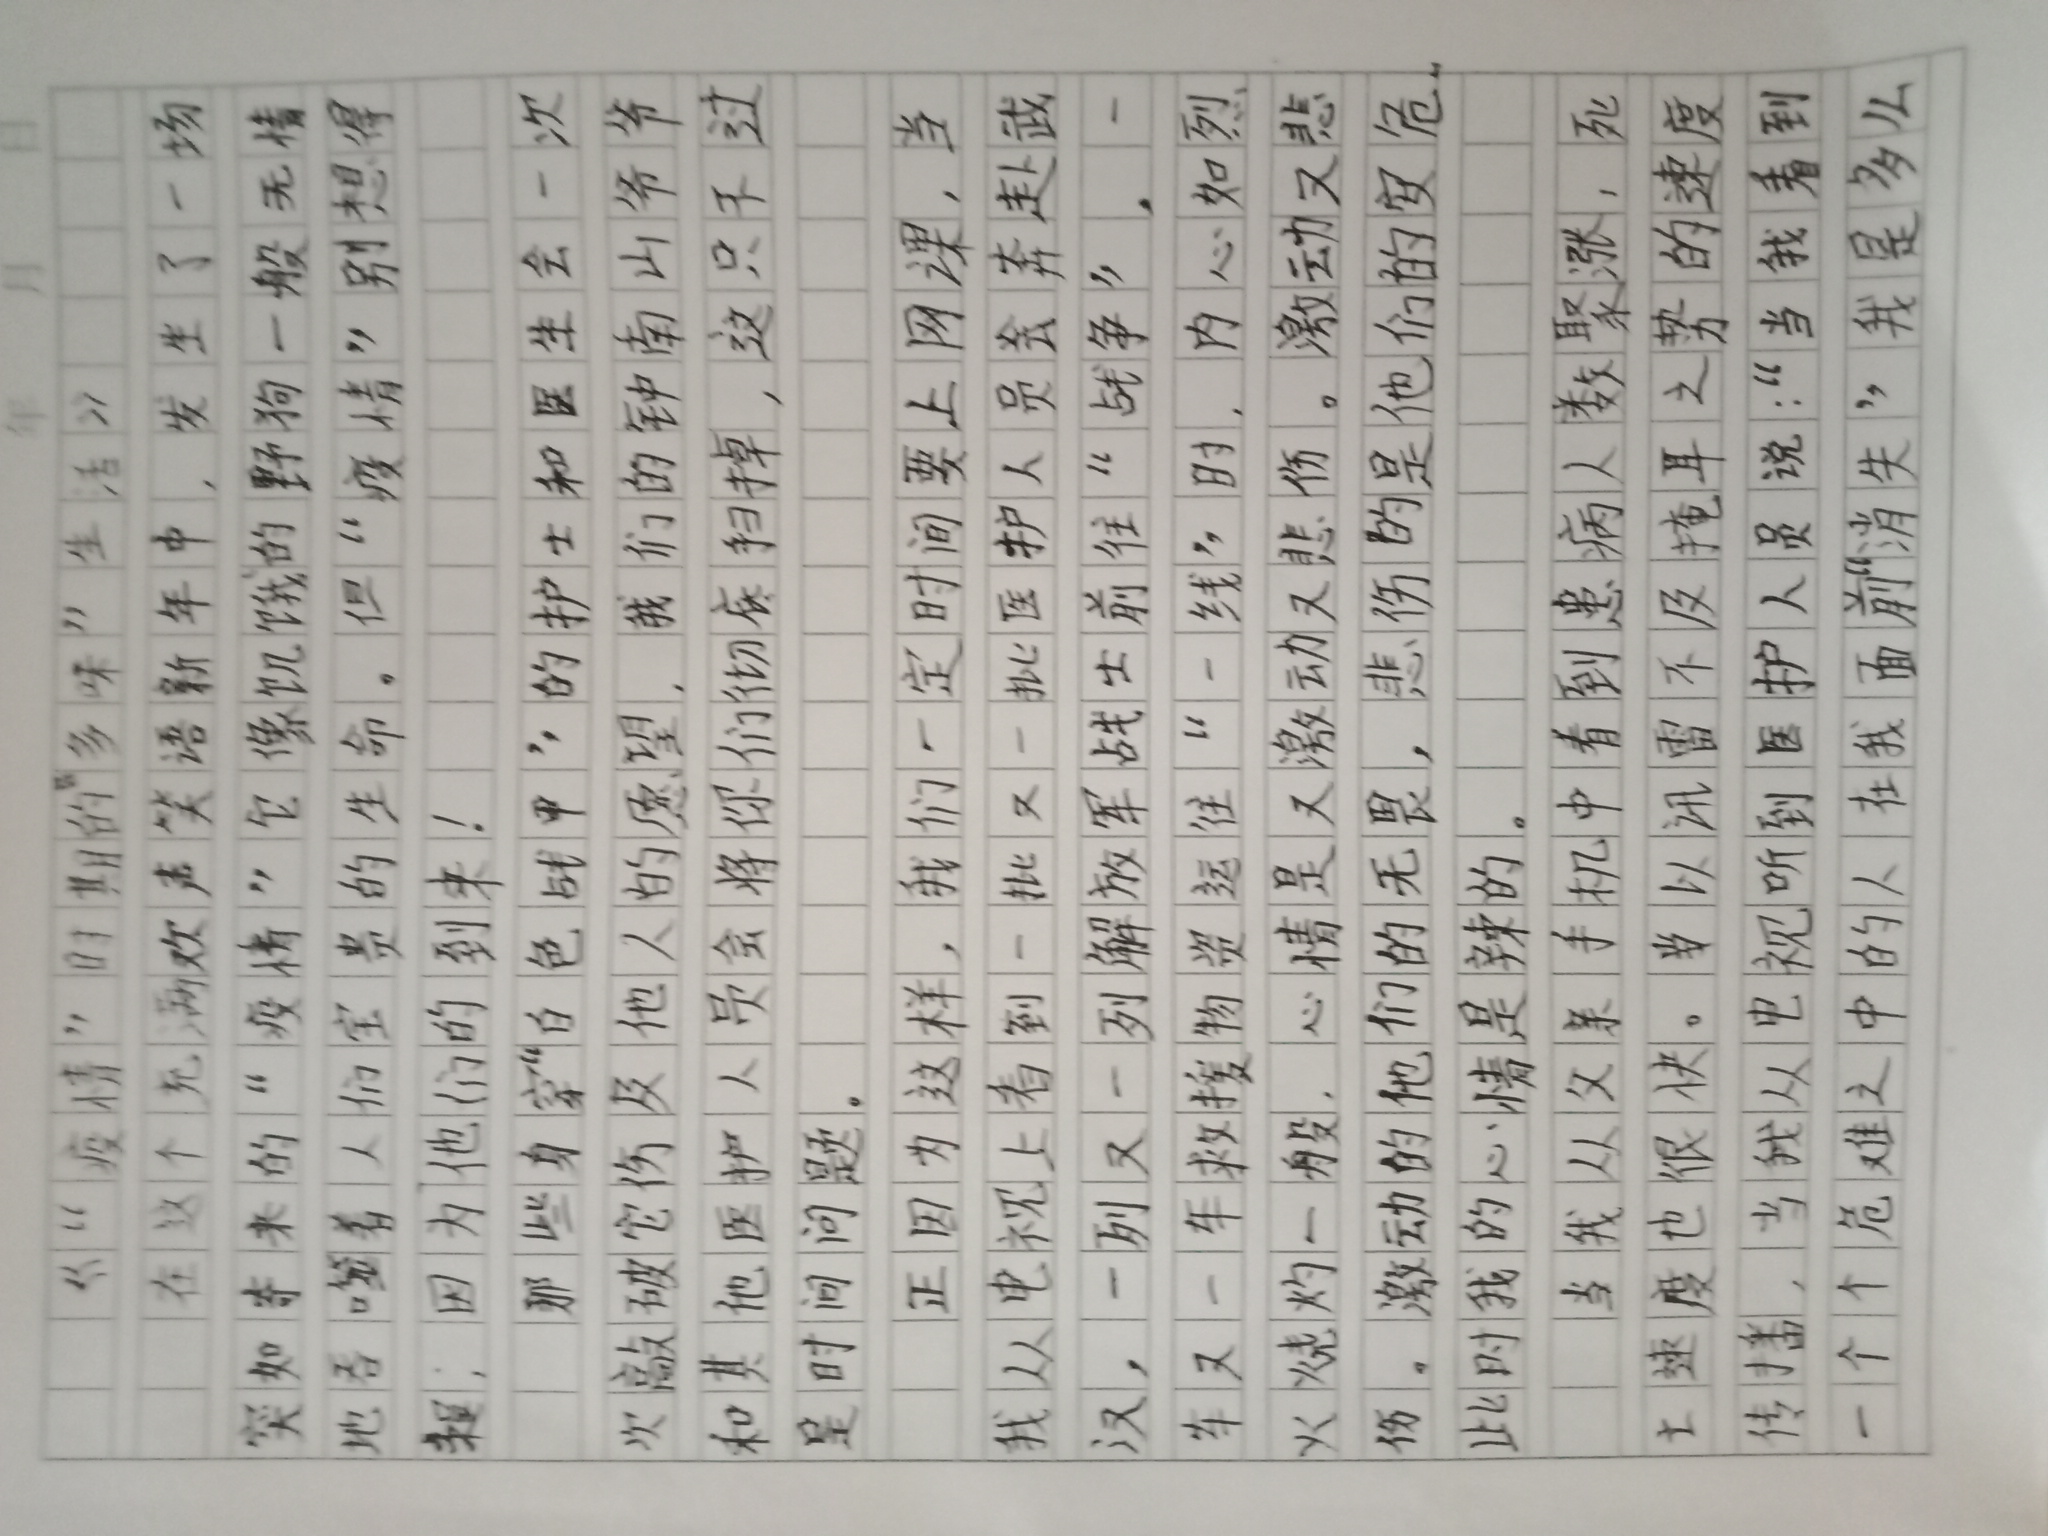 年 月 日
《“疫情”时期的“多味”生活》
在这个充满欢声笑语新年中，发生了一场
突如寄来的“疫情”它像饥饿的野狗一般无情
地吞噬着人们宝贵的生命。但“疫情”别想得
因为他们的到来！
那些身穿“白色战甲”的护士和医生会一次
次敲破它伤及他人的愿望，我们的钟南山爷爷
和其他医护人员会将你们彻底扫掉，这只不过
是时间问题。
正因为这样，我们一定时间要上网课，当
我从电视上看到一批又一批医护人员会奔赴武
汉，一列又一列解放军战士前往“战争”。一
车又一车救援物资运往“一线”时，内心如烈
火烧灼一般，心情是又激动又悲伤。激动又悲
伤。激动的他们的无畏，悲伤的是他们的安危。
此时我的心情是辣的。
当我从父亲手机中看到患病人数聚涨，死
亡速度也很快。当以讯雷不及掩耳之势的速度
传播，当我从电视听到医护人员说：“当我看到
一个个危难之中的人在我面前“消失”，我是多么